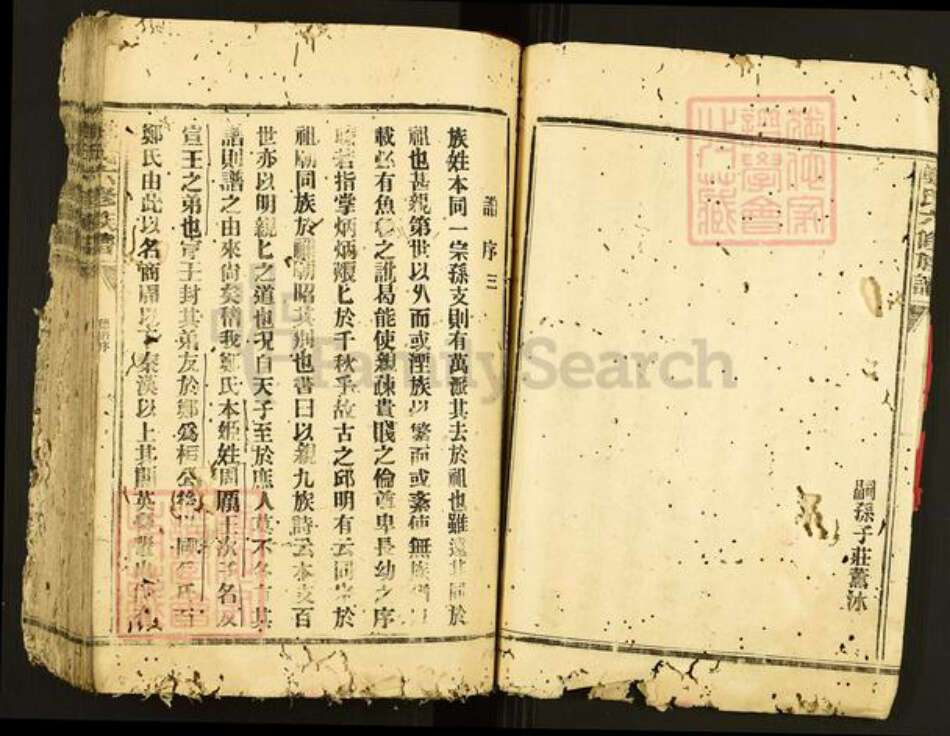 鄭氏六修族譜
嗣孫子莊薰沐
譜序三
族姓本同一宗孫支則有萬派其去於祖也雖遠其同於
祖也甚親第世以久而或湮族以繁而或紊使無族譜以
載必有魚之訛曷能使親疎貴賤之倫尊卑長幼之序
若指掌炳炳烺匕於千秋乎故古之邱明有云同宗於
祖廟同族於禰廟昭其別也書曰以親九族詩云本支百
世亦以明親匕之道也況自天子至於庶人莫不各有其
譜則譜之由來尚矣稽我鄭氏本姬姓周厲王次子名友
宣王之弟也宣王封其弟友於鄭為桓公後國氏
鄭氏由此以名商周以下秦漢以上其間英
FamilySearch